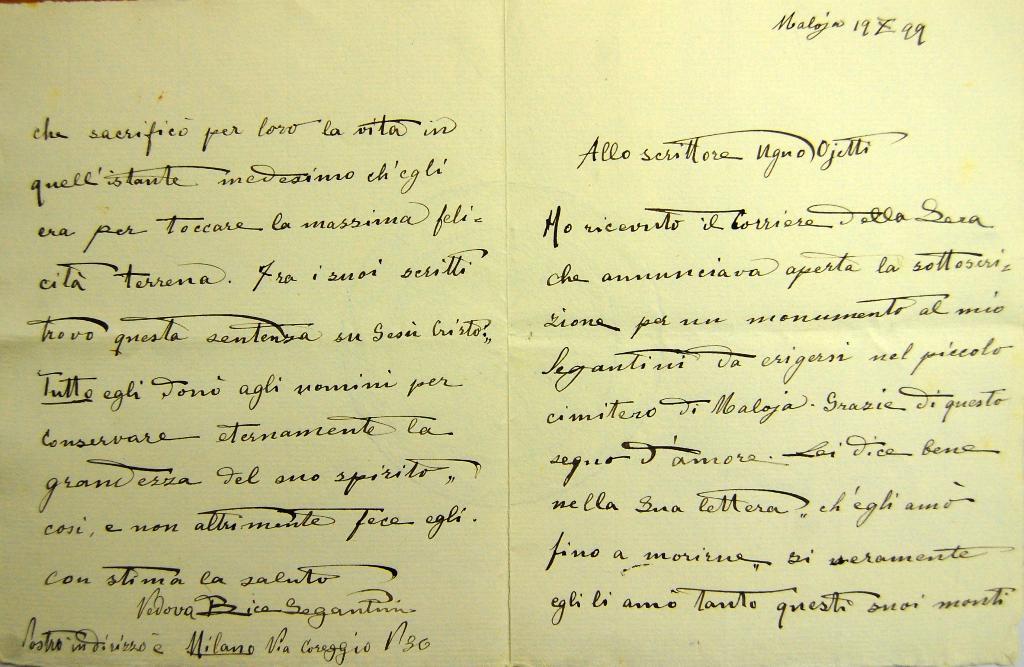 Maloja 19 X 99
Allo scrittore Ugno Ojetti
Ho ricevuto il Corriere della Sera
che annunciava aperta la sottoscri=
zione per un monumento al mio
Segantini da erigersi nel piccolo
cimitero di Maloja. Grazie di questo
segno d'amore. Lei dice bene
nella Sua lettera „ ch'egli amò
fino a morirne„ si veramente
egli li amò tanto questi suoi monti
che sacrificò per loro la vita in
quell'istante medesimo ch'egli
era per toccare la massima feli=
cità terrena. Fra i suoi scritti
trovo questa sentenza su Gesù Cristo: „
Tutto egli donò agli uomini per
conservare eternamente la
grandezza del suo spirito „
così, e non altrimente fece egli.
con stima la saluto
Vedova Bice Segantini
Nostro indirizzo è Milano Via Coreggio N 30